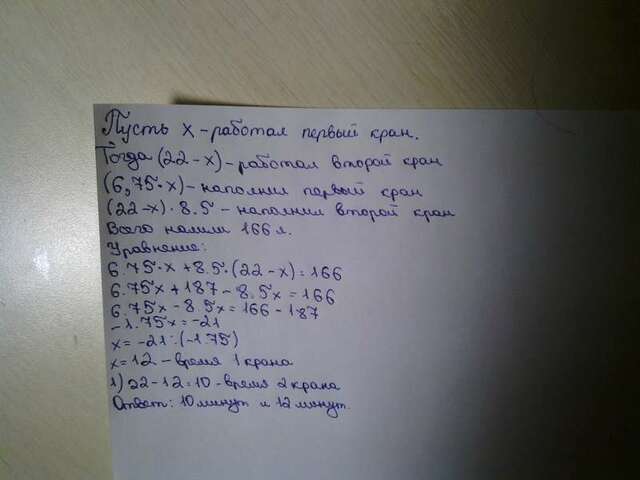 Пусть x - работал первый кран.
Тогда (22-x) - работал второй кран
(6,75·x) - наполнил первый кран
(22-x)·8.5 - наполнил второй кран
Всего налили 166 л.
Уравнение:
6.75·x+8.5·(22-x)=166
6.75x+187-8.5x=166
6.75x-8.5x=166-187
-1.75x=-21
x=-21:(-1.75)
x=12 - время 1 крана
1) 22-12=10 - время 2 крана
Ответ: 10 минут и 12 минут.